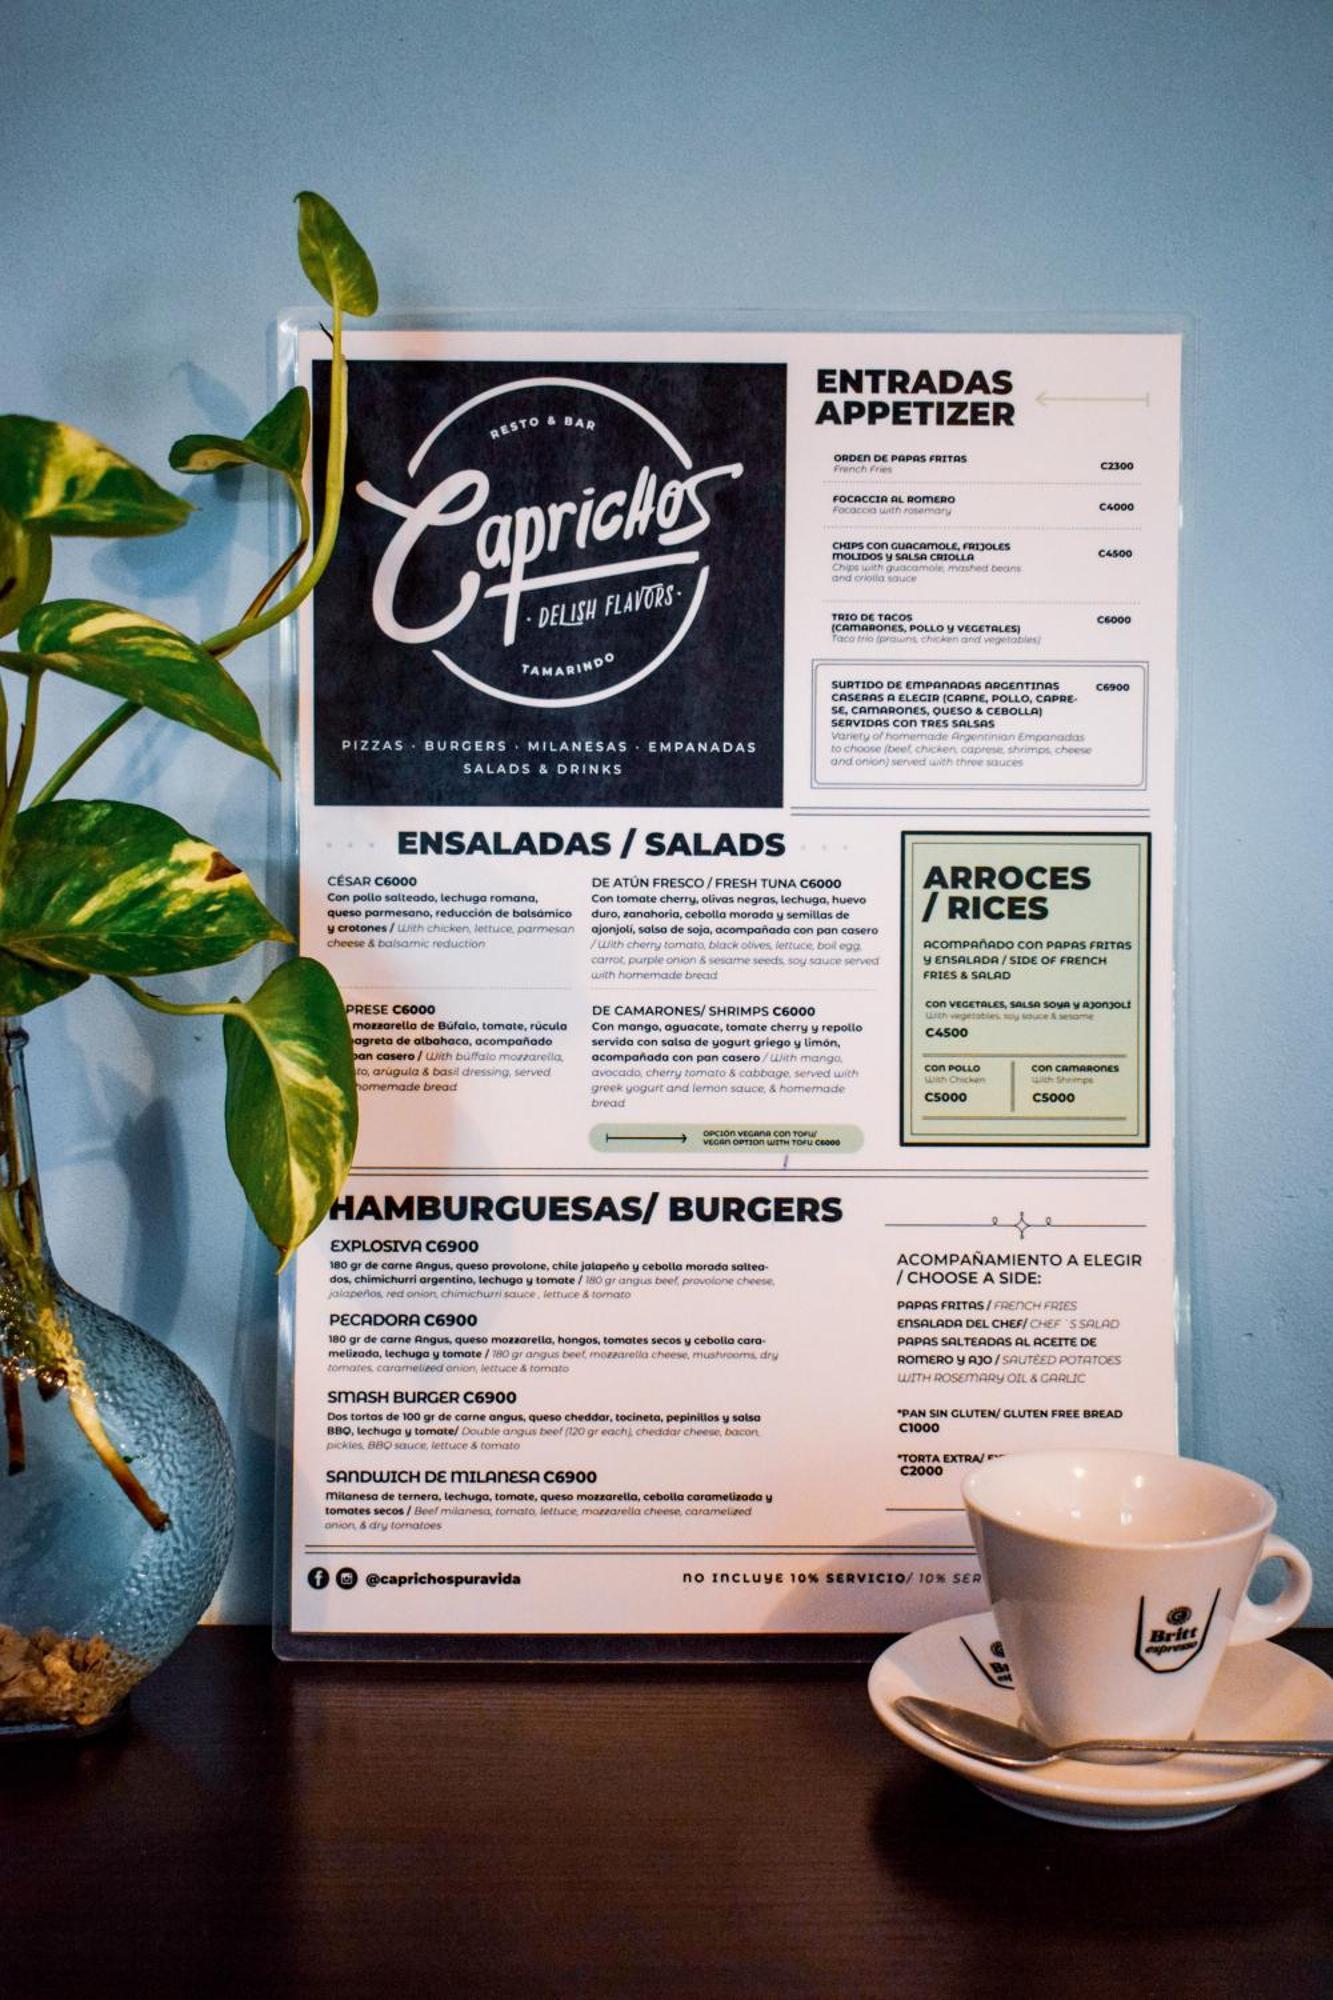 RESTO & BAR
Caprichos
· DELISH FLAVORS ·
TAMARINDO
PIZZAS · BURGERS · MILANESAS · EMPANADAS
SALADS & DRINKS
ENTRADAS
APPETIZER
ORDEN DE PAPAS FRITAS C2300
French Fries
FOCACCIA AL ROMERO C4000
Focaccia with rosemary
CHIPS CON GUACAMOLE, FRIJOLES C4500
MOLIDOS Y SALSA CRIOLLA
Chips with guacamole, mashed beans
and criolla sauce
TRIO DE TACOS C6000
(CAMARONES, POLLO Y VEGETALES)
Taco trio (prawns, chicken and vegetables)
SURTIDO DE EMPANADAS ARGENTINAS C6900
CASERAS A ELEGIR (CARNE, POLLO, CAPRE-
SE, CAMARONES, QUESO & CEBOLLA)
SERVIDAS CON TRES SALSAS
Variety of homemade Argentinian Empanadas
to choose (beef, chicken, caprese, shrimps, cheese
and onion) served with three sauces
ENSALADAS / SALADS
CÉSAR C6000
Con pollo salteado, lechuga romana,
queso parmesano, reducción de balsámico
y crotones / With chicken, lettuce, parmesan
cheese & balsamic reduction
PRESE C6000
mozzarella de Búfalo, tomate, rúcula
agreta de albahaca, acompañado
pan casero / With búffalo mozzarella,
to, arúgula & basil dressing, served
homemade bread
DE ATÚN FRESCO / FRESH TUNA C6000
Con tomate cherry, olivas negras, lechuga, huevo
duro, zanahoria, cebolla morada y semillas de
ajonjolí, salsa de soja, acompañada con pan casero
/ With cherry tomato, black olives, lettuce, boil egg,
carrot, purple onion & sesame seeds, soy sauce served
with homemade bread
DE CAMARONES/ SHRIMPS C6000
Con mango, aguacate, tomate cherry y repollo
servida con salsa de yogurt griego y limón,
acompañada con pan casero / With mango,
avocado, cherry tomato & cabbage, served with
greek yogurt and lemon sauce, & homemade
bread
OPCIÓN VEGANA CON TOFU/
VEGAN OPTION WITH TOFU C6000
ARROCES
/ RICES
ACOMPAÑADO CON PAPAS FRITAS
Y ENSALADA / SIDE OF FRENCH
FRIES & SALAD
CON VEGETALES, SALSA SOYA Y AJONJOLÍ
With vegetables, soy sauce & sesame
C4500
CON POLLO
With Chicken
C5000
CON CAMARONES
With Shrimps
C5000
HAMBURGUESAS/ BURGERS
EXPLOSIVA C6900
180 gr de carne Angus, queso provolone, chile jalapeño y cebolla morada saltea-
dos, chimichurri argentino, lechuga y tomate / 180 gr angus beef, provolone cheese,
jalapeños, red onion, chimichurri sauce , lettuce & tomato
PECADORA C6900
180 gr de carne Angus, queso mozzarella, hongos, tomates secos y cebolla cara-
melizada, lechuga y tomate / 180 gr angus beef, mozzarella cheese, mushrooms, dry
tomatoes, caramelized onion, lettuce & tomato
SMASH BURGER C6900
Dos tortas de 100 gr de carne angus, queso cheddar, tocineta, pepinillos y salsa
BBQ, lechuga y tomate/ Double angus beef (120 gr each), cheddar cheese, bacon,
pickles, BBQ sauce, lettuce & tomato
SANDWICH DE MILANESA C6900
Milanesa de ternera, lechuga, tomate, queso mozzarella, cebolla caramelizada y
tomates secos / Beef milanesa, tomato, lettuce, mozzarella cheese, caramelized
onion, & dry tomatoes
ACOMPAÑAMIENTO A ELEGIR
/ CHOOSE A SIDE:
PAPAS FRITAS / FRENCH FRIES
ENSALADA DEL CHEF/ CHEF ´S SALAD
PAPAS SALTEADAS AL ACEITE DE
ROMERO Y AJO / SAUTÉED POTATOES
WITH ROSEMARY OIL & GARLIC
*PAN SIN GLUTEN/ GLUTEN FREE BREAD
C1000
*TORTA EXTRA/
C2000
@caprichospuravida
NO INCLUYE 10% SERVICIO/ 10% SER
Britt
espresso